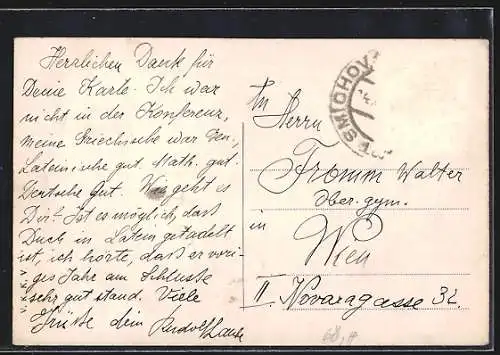 Herrlichen Dank für
Deine Karte. Ich war
nicht in der Konferenz,
meine Griechische war Gen.,
Lateinische gut. Math. gut.
Deutsche Gut. Wie geht es
Dir? Ist es möglich, dass
Duch in Latein getadelt
ist, ich hörte, dass er vori-
ges Jahr am Schlusse
sehr gut stand. Viele
Grüsse dein Rudolf
SMICHOV
An
Herrn
Fromm Walter
Ober.gym.
in
Wien
II. Novaragasse 32.